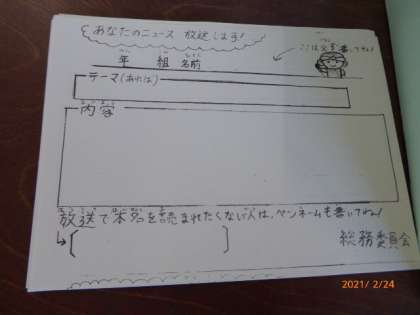 あなたのニュース 放送します!
ここは必ず書いてね!
年 組 名前
テーマ(あれば)
内容
放送で本名を読まれたくない人は、ペンネームも書いてね!
総務委員会
2021/ 2/24